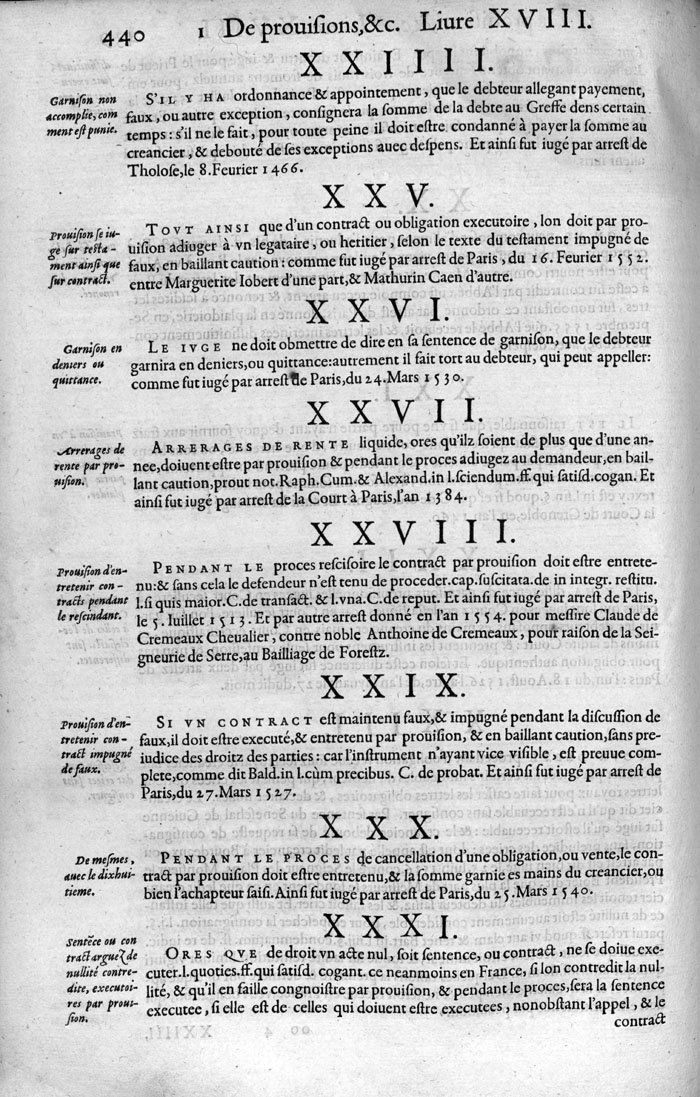 440 1 De prouisions,&c. Liure XVIII.
XXIIII.
Garnison non
accomplie, com
ment est punie.
S'IL Y HA ordonnance & appointement, que le debteur allegant payement,
faux, ou autre exception, consignera la somme de la debte au Greffe dens certain
temps: s'il ne le fait, pour toute peine il doit estre condanné à payer la somme au
creancier, & debouté de ses exceptions auec despens. Et ainsi fut iugé par arrest de
Tholose, le 8. Feurier 1466.
XXV.
Prouision se iu-
ge sur testa-
ment ainsi que
sur contract.
TOVT AINSI que d'un contract ou obligation executoire, lon doit par pro-
uision adiuger à vn legataire, ou heritier, selon le texte du testament impugné de
faux, en baillant caution: comme fut iugé par arrest de Paris, du 16. Feurier 1552.
entre Marguerite Iobert d'une part, & Mathurin Caen d'autre.
XXVI.
Garnison en
deniers ou
quittance.
LE IVGE ne doit obmettre de dire en sa sentence de garnison, que le debteur
garnira en deniers, ou quittance: autrement il fait tort au debteur, qui peut appeller:
comme fut iugé par arrest de Paris, du 24. Mars 1530.
XXVII.
Arrerages de
rente par pro-
uision.
ARRERAGES DE RENTE liquide, ores qu'ilz soient de plus que d'une an-
nee, doiuent estre par prouision & pendant le proces adiugez au demandeur, en bail-
lant caution, prout not. Raph. Cum. & Alexand. in l. sciendum. ff. qui satisd. cogan. Et
ainsi fut iugé par arrest de la Court à Paris, l'an 1384.
XXVIII.
Prouision d'en-
tretenir con-
tracts pendant
le rescindant.
PENDANT LE proces rescisoire le contract par prouision doit estre entrete-
nu: & sans cela le defendeur n'est tenu de proceder. cap. suscitata. de in integr. restitu.
l. si quis maior. C. de transact. & l. vna. C. de reput. Et ainsi fut iugé par arrest de Paris,
le 5. Iuillet 1513. Et par autre arrest donné en l'an 1554. pour messire Claude de
Cremeaux Cheualier, contre noble Anthoine de Cremeaux, pour raison de la Sei-
gneurie de Serre, au Bailliage de Forestz.
XXIX.
Prouision d'en-
tretenir con-
tract impugné
de faux.
SI VN CONTRACT est maintenu faux, & impugné pendant la discussion de
faux, il doit estre executé, & entretenu par prouision, & en baillant caution, sans pre-
iudice des droitz des parties: car l'instrument n'ayant vice visible, est preuue com-
plete, comme dit Bald. in l. cùm precibus. C. de probat. Et ainsi fut iugé par arrest de
Paris, du 27. Mars 1527.
XXX.
De mesmes,
auec le dixhui-
tieme.
PENDANT LE PROCES de cancellation d'une obligation, ou vente, le con-
tract par prouision doit estre entretenu, & la somme garnie es mains du creancier, ou
bien l'achapteur saisi. Ainsi fut iugé par arrest de Paris, du 25. Mars 1540.
XXXI.
Sentẽce ou con
tract arguez de
nullité contre-
dite, executoi-
res par proui-
sion.
ORES QVE de droit vn acte nul, soit sentence, ou contract, ne se doiue exe-
cuter. l. quoties. ff. qui satisd. cogant. ce neanmoins en France, si lon contredit la nul-
lité, & qu'il en faille congnoistre par prouision, & pendant le proces, sera la sentence
executee, si elle est de celles qui doiuent estre executees, nonobstant l'appel, & le
contract